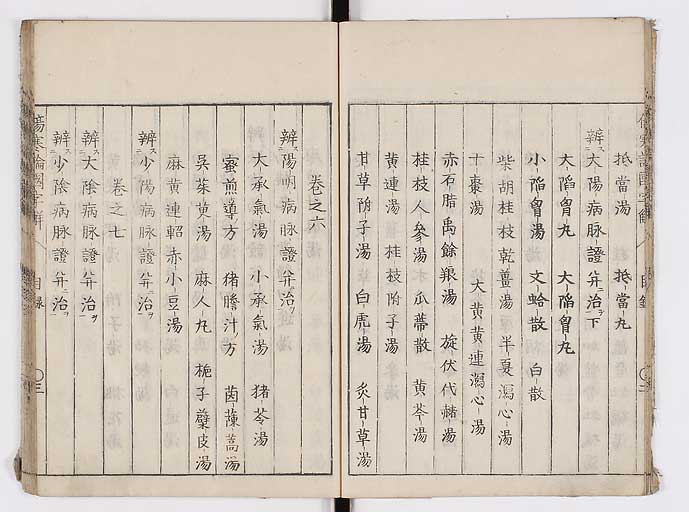 抵當湯 抵當丸
辨大陽病脉證并治下
大陷胷丸 大陷胷丸
小陷胷湯 文蛤散 白散
柴胡桂枝乾薑湯 半夏瀉心湯
十棗湯 大黄黄連瀉心湯
赤石脂禹餘粮湯 旋伏代赭湯
桂枝人參湯 瓜蔕散 黄芩湯
黄連湯 桂枝附子湯
甘草附子湯 白虎湯 炙甘草湯
目錄
卷之六
辨陽明病脉證并治
大承氣湯 小承氣湯 猪苓湯
蜜煎導方 猪膽汁方 茵蔯蒿湯
吳茱萸湯 麻人丸 梔子蘗皮湯
麻黄連軺赤小豆湯
辨少陽病脉證并治
卷之七
辨大陰病脉證并治
辨少陰病脉證并治
傷寒論國字解 目錄 三